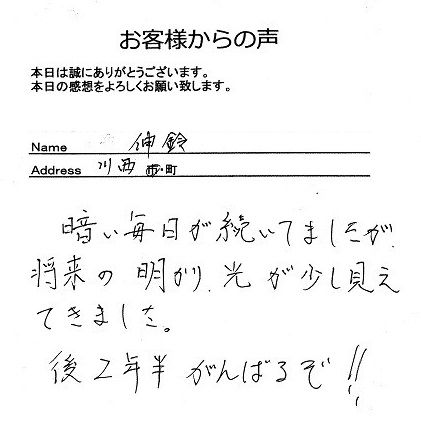 お客様からの声
本日は誠にありがとうございます。
本日の感想をよろしくお願い致します。
Name 伸鈴
Address 川西 市・町
暗い毎日が続いてましたが、
将来の明かり、光が少し見え
てきました。
後2年半 がんばるぞ!!